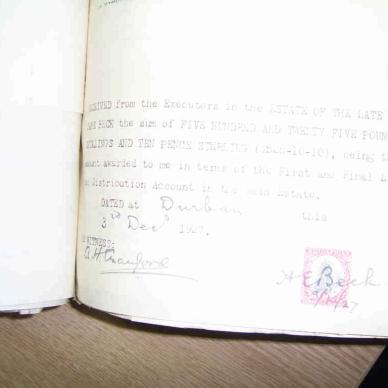 RECEIVED from the Executors in the ESTATE OF THE LATE
BECK the sum of FIVE HUNDRED AND TWENTY FIVE POUN
SHILLINGS AND TEN PENCE STERLING being th
amount awarded to me in terms of the First and Final L
Distribution Account in the said Estate.
DATED at Durban this
3rd Decr 1927.
WITNESS:
Crawford
H E Beck
27